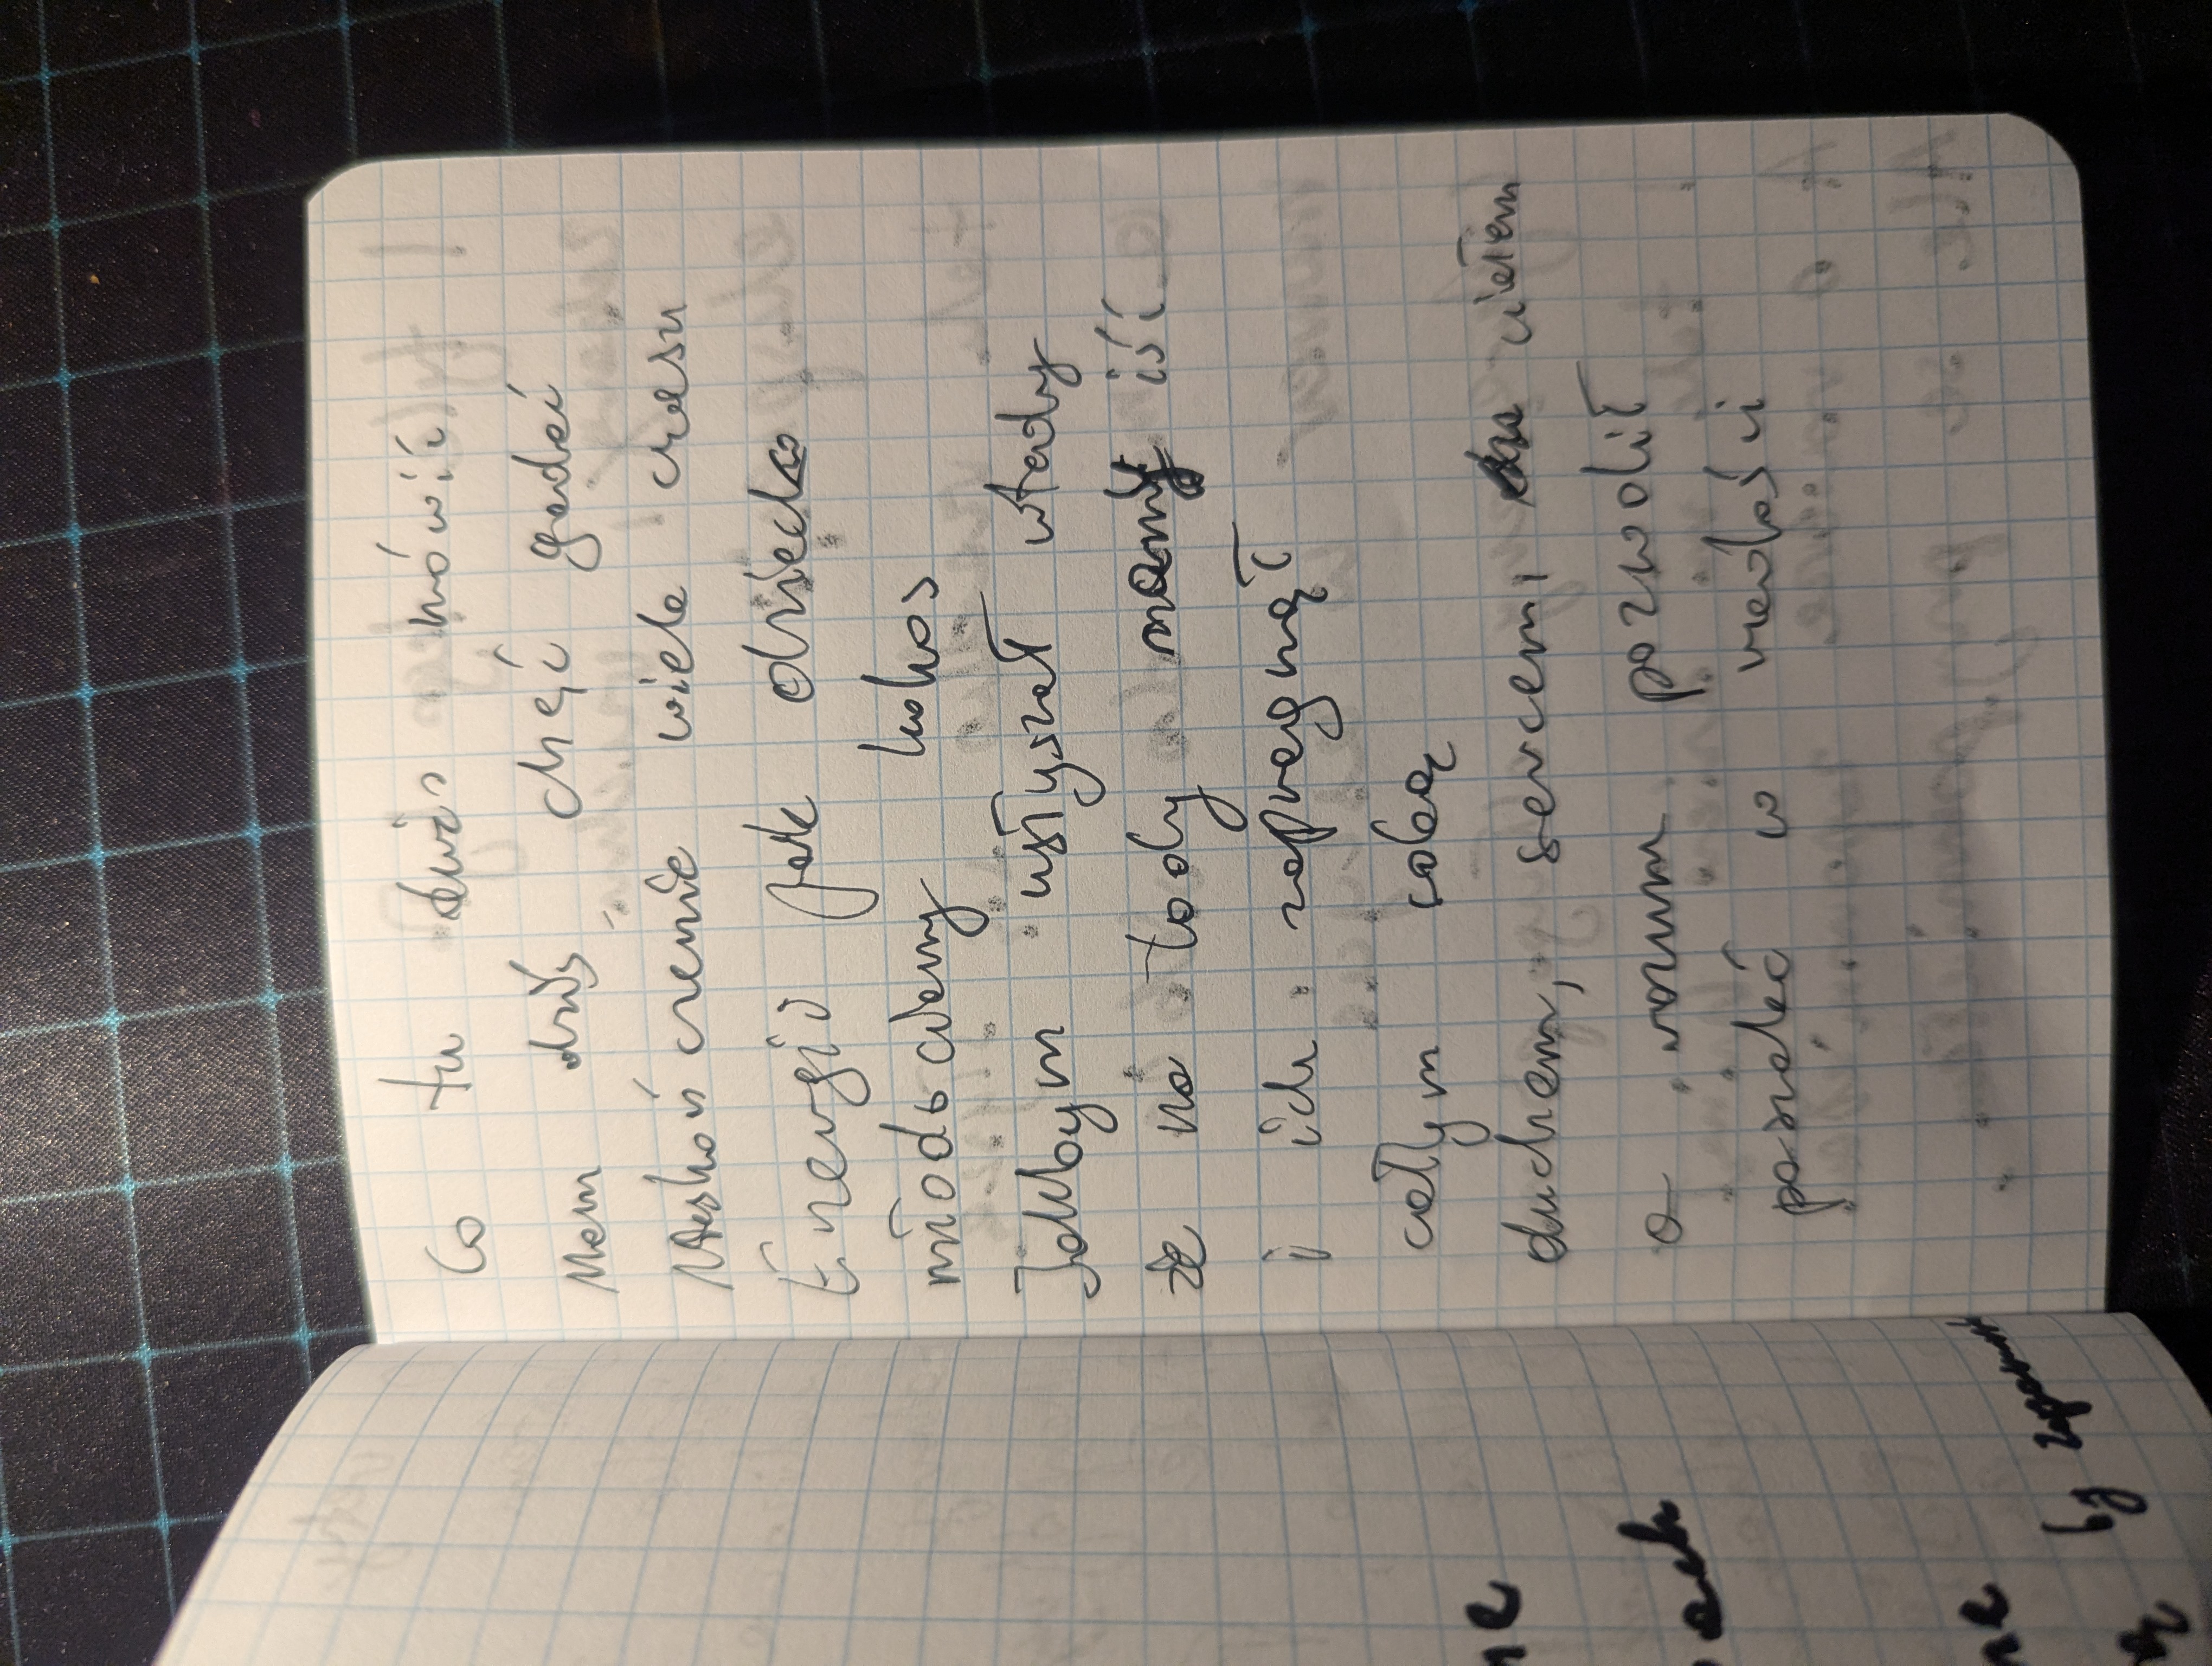 Co tu dużo mówić,
Mam dziś chęć gadać
Niesknończenie wiele czasu
Energio jak dziecko
młodociany kokos
Jakbym usłyszał wtedy
że na lody mamy iść
i ich zapragnął
całym sobą
duchem, sercem, ciałem
a rozum pozwolił
popadać w radości